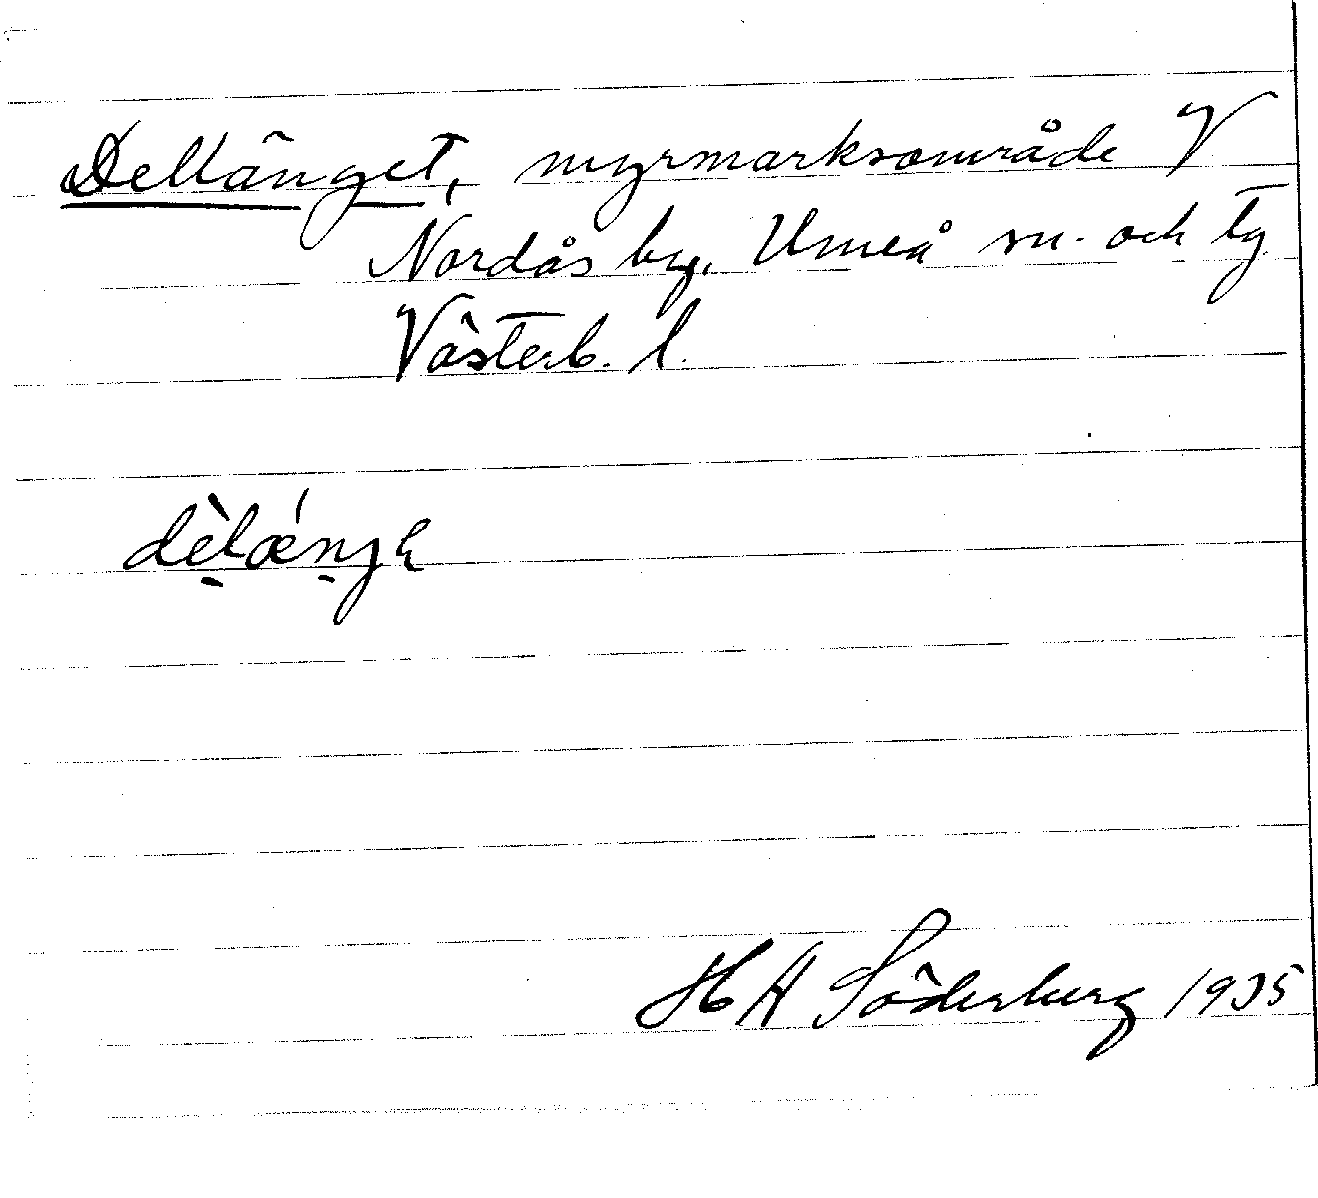 Dellänget, myrmarksområde V
Nordås by, Umeå sn. och tg
Västerb. l.
dèlǽnjɛ
H A Söderberg 1935